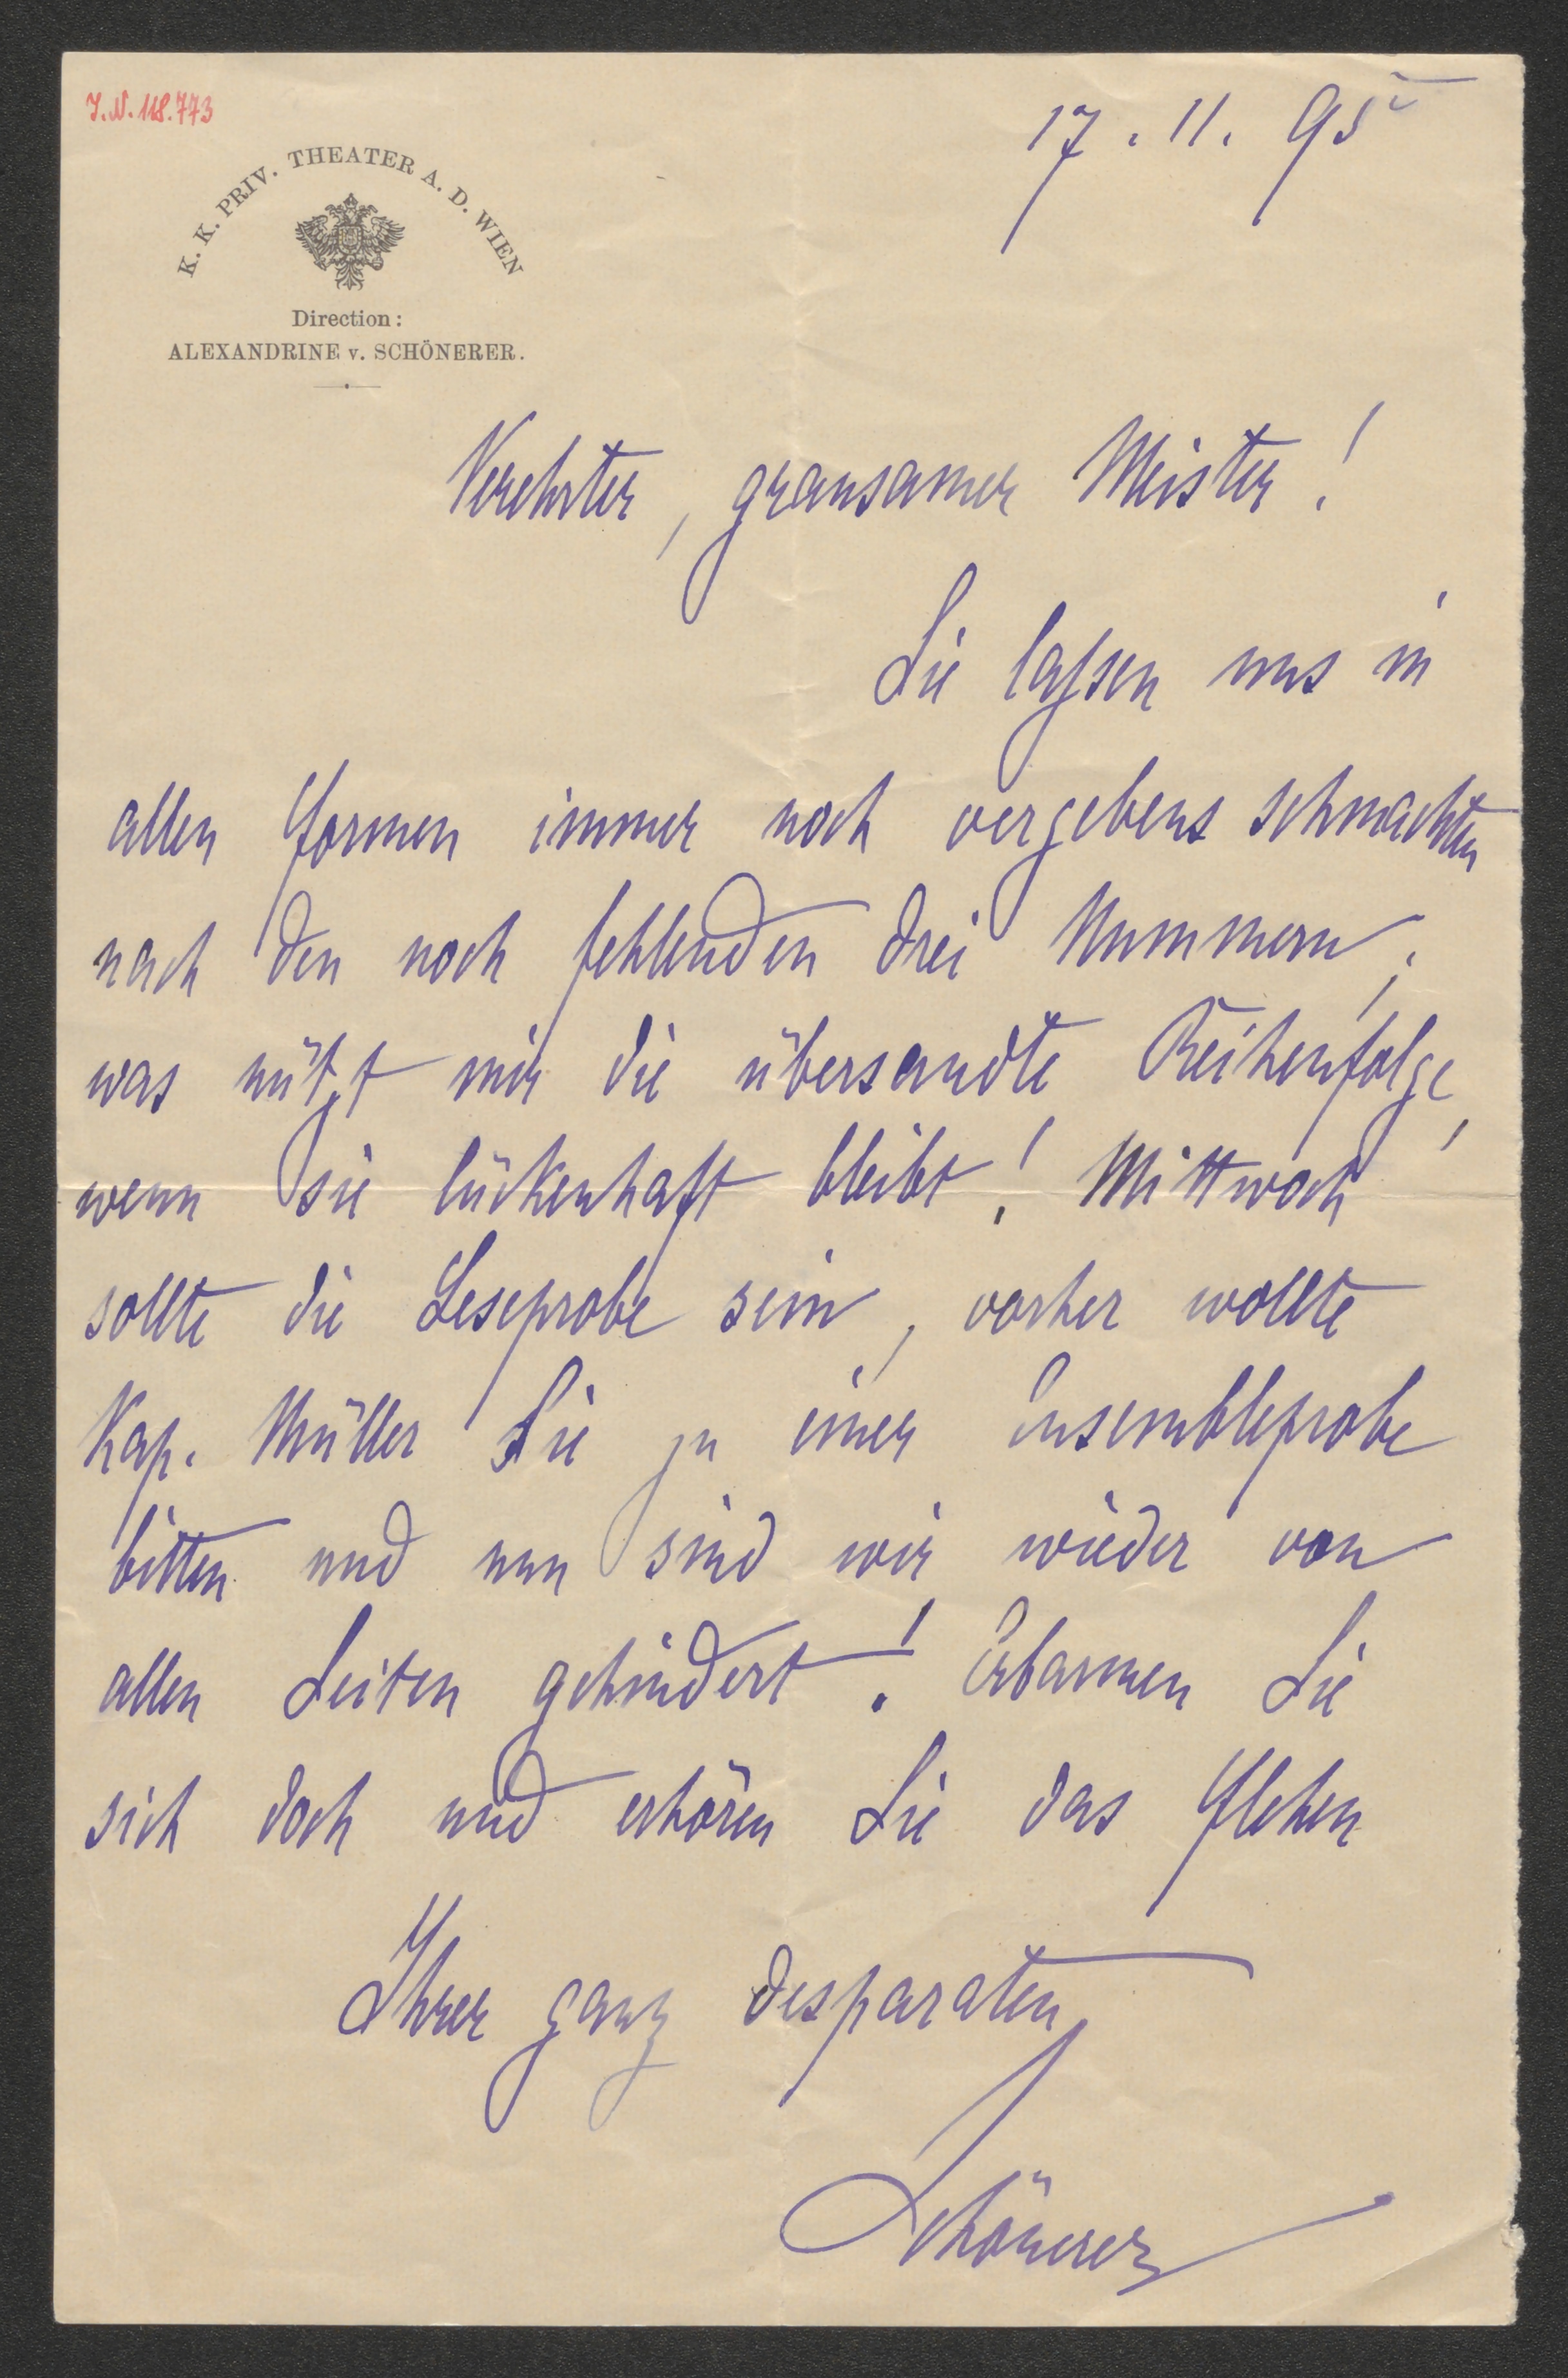 I.N. 118.773
17. 11. 95
K. K. PRIV. THEATER A. D. WIEN
Direction:
ALEXANDRINE v. SCHÖNERER.
Verehrter, grausamer Meister!
Sie lassen uns in
allen Formen immer noch vergebens schmachten
nach den noch fehlenden drei Nummern;
was nützt mir die übersandte Reihenfolge,
wenn sie lückenhaft bleibt! Mittwoch
sollte die Leseprobe sein, vorher wollte
Kap. Müller Sie zu einer Ensembleprobe
bitten und nun sind wir wieder von
allen Seiten gehindert! Erbarmen Sie
sich doch und erhören Sie das Flehen
Ihrer ganz desparaten
Schönerer